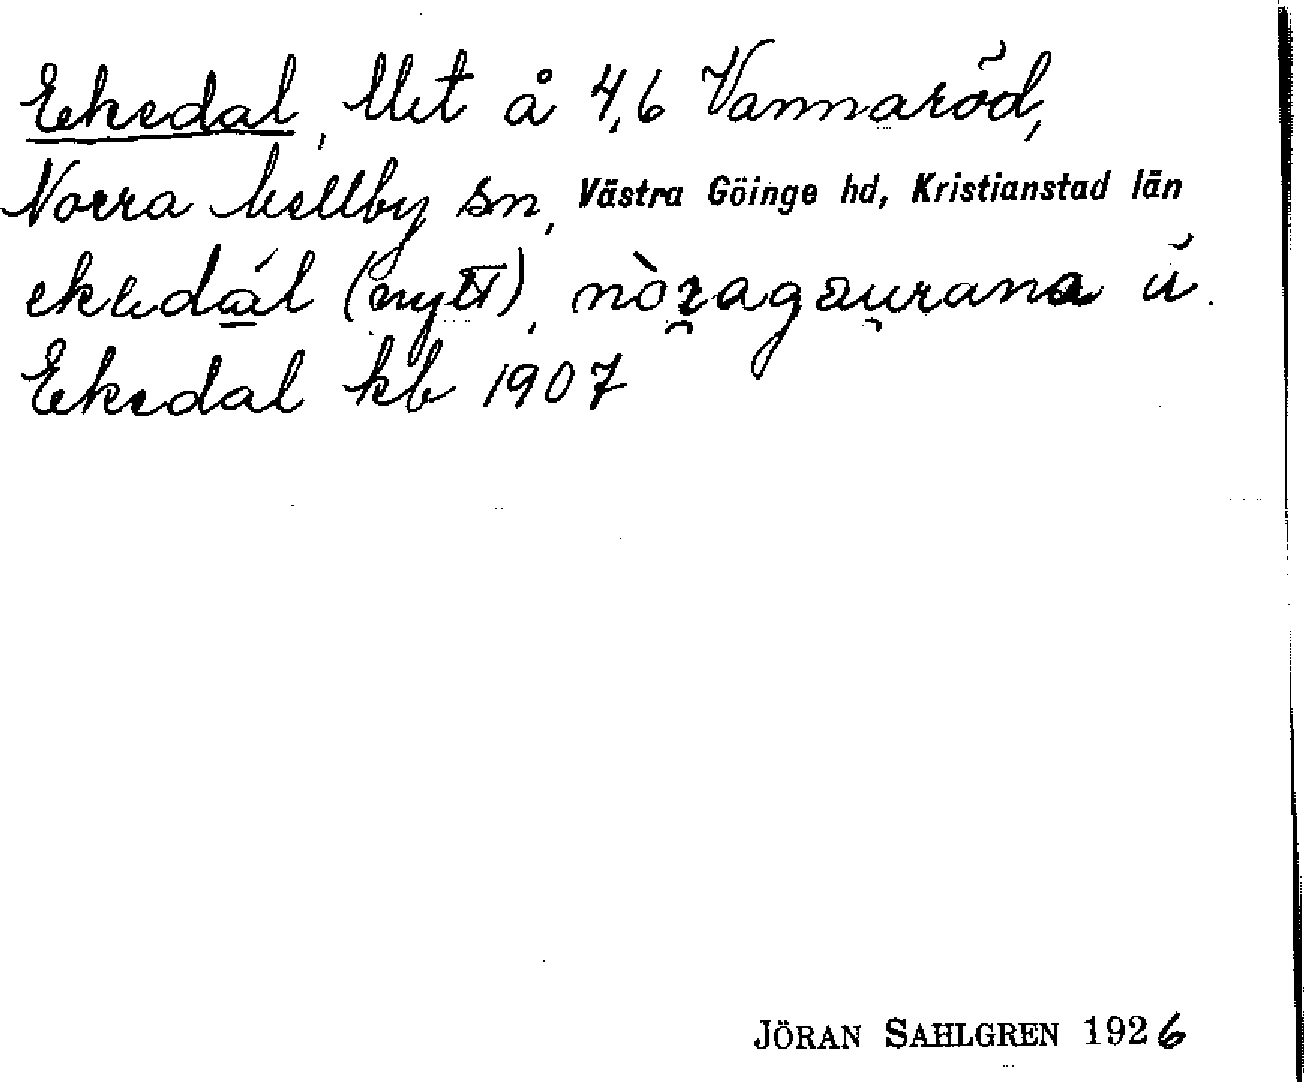 Ekedal, Uet å 4,6 Vannaröd,
Norra Mellby sn, Västra Göinge hd, Kristianstad län
ekedál (nytt), nòragaurana ú.
Ekedal kb 1907
JÖRAN SAHLGREN 1926